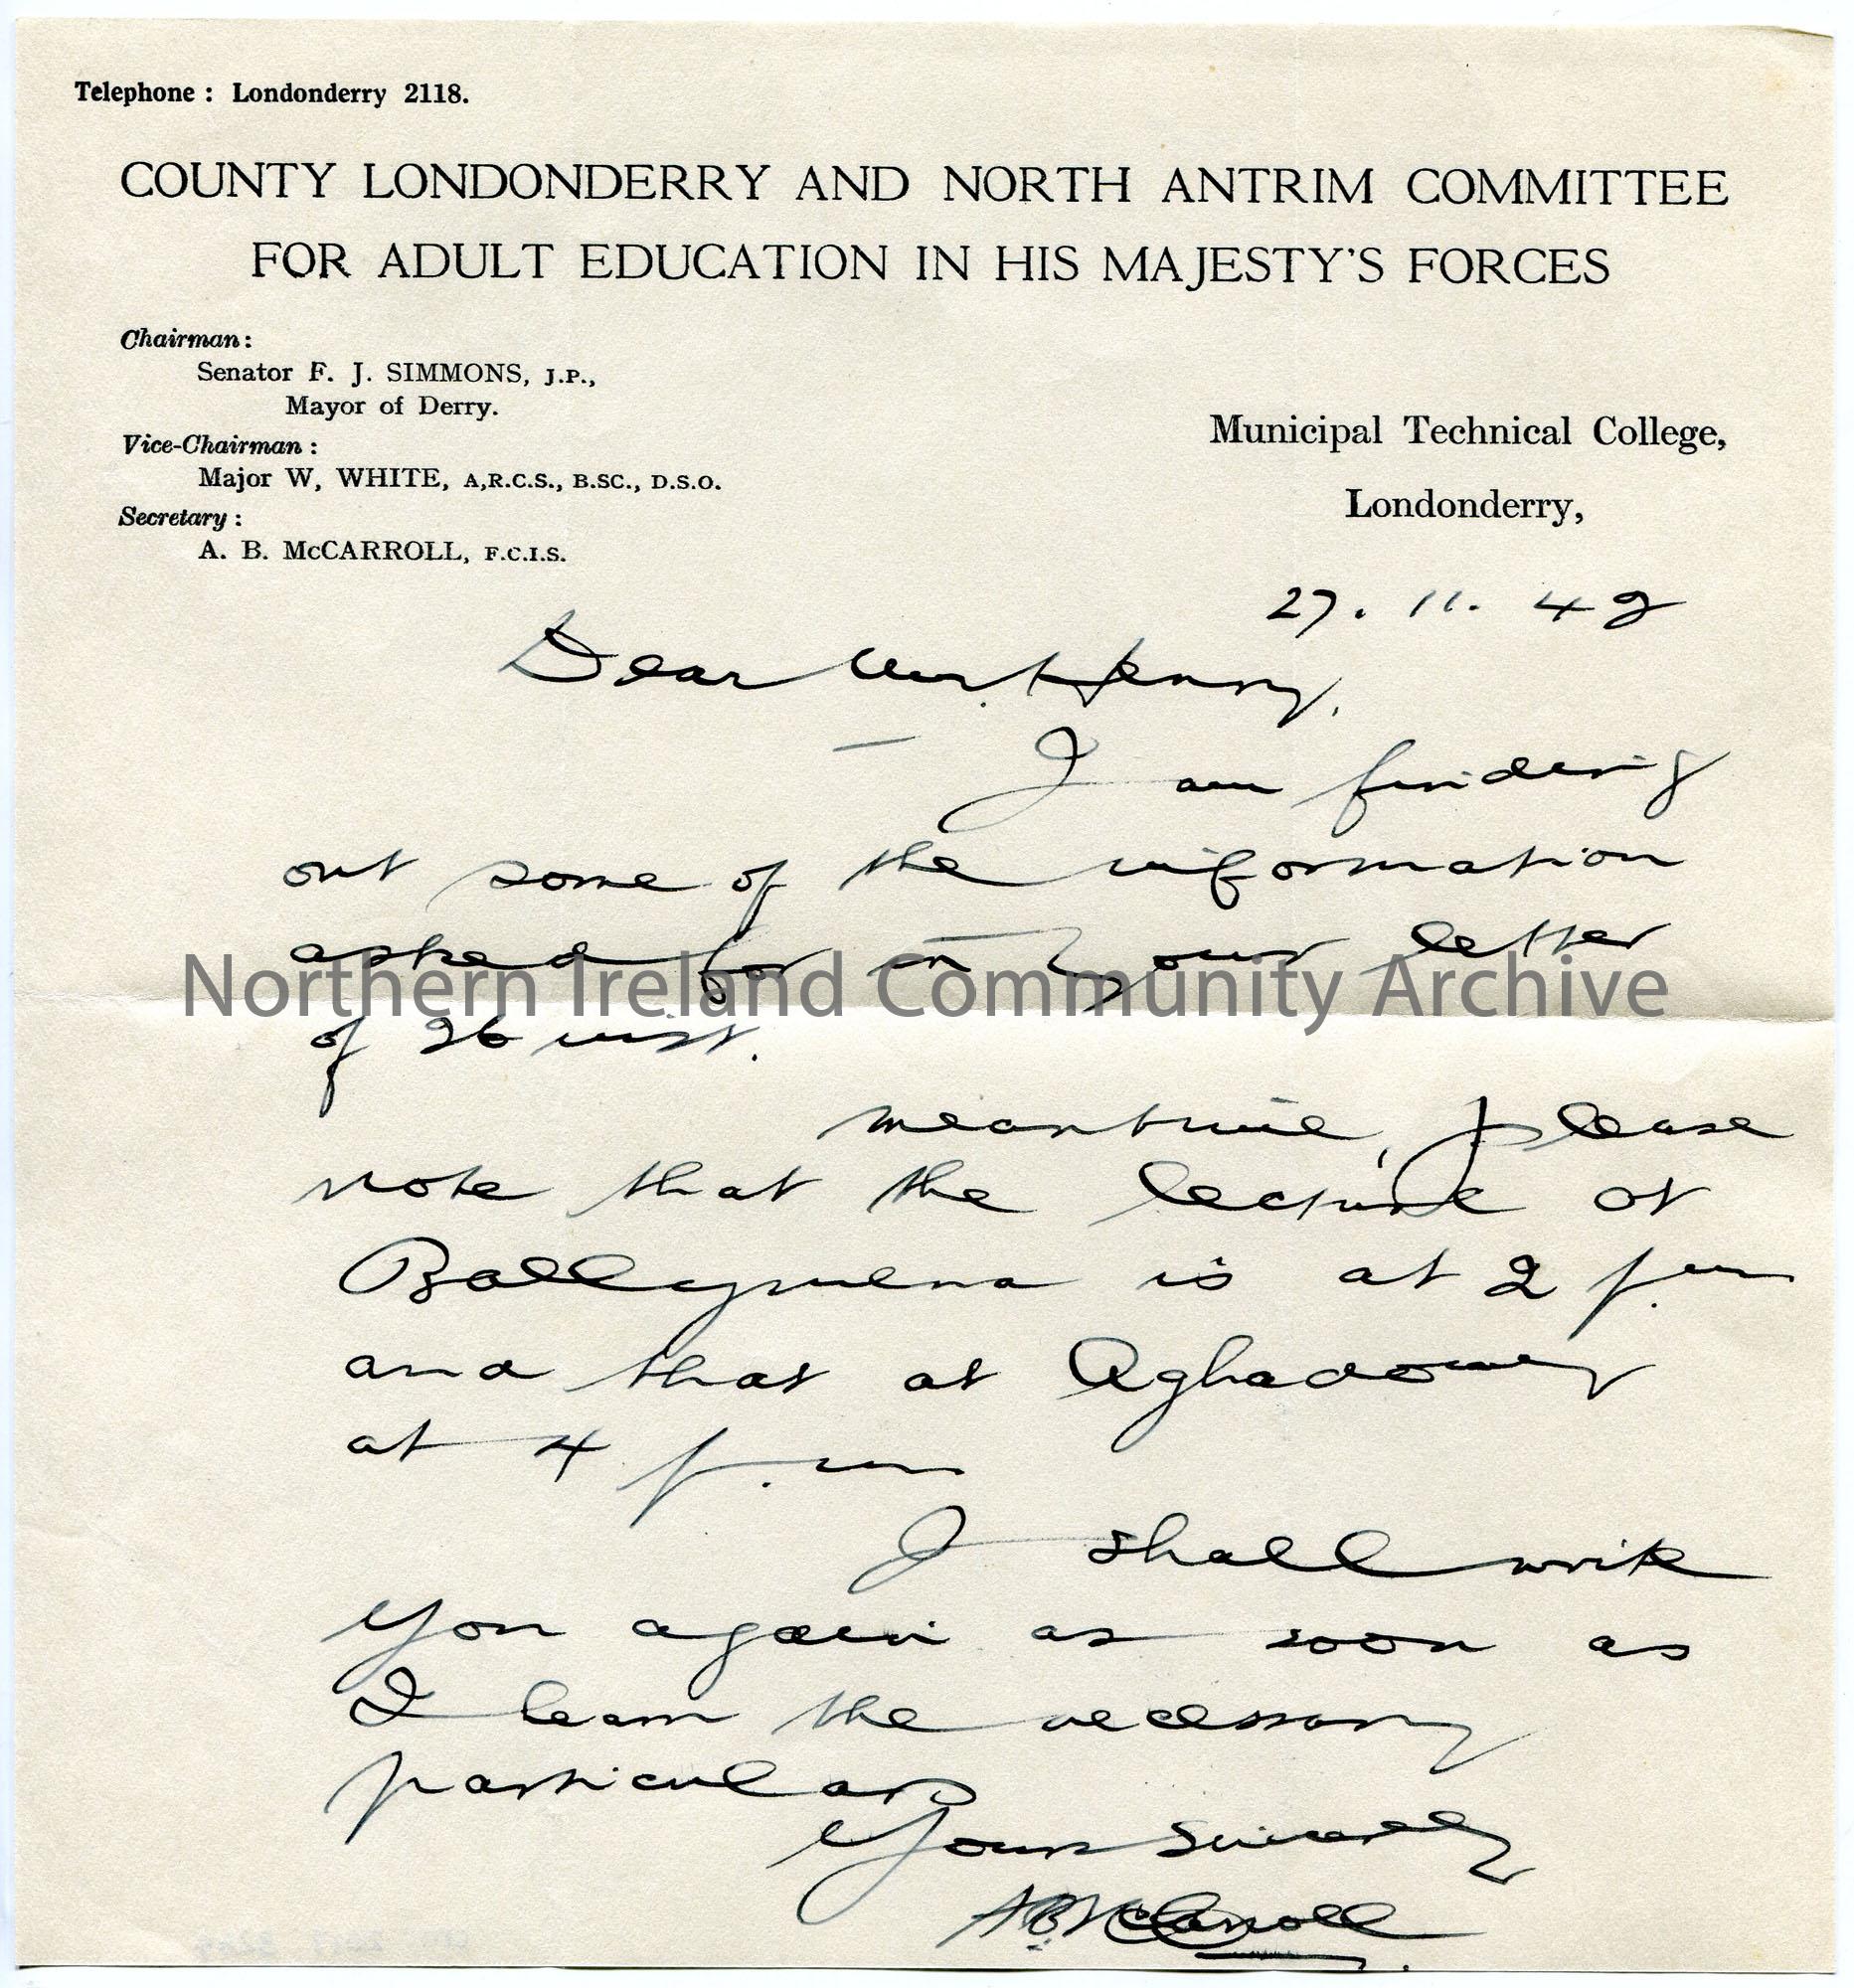 Telephone : Londonderry 2118.
COUNTY LONDONDERRY AND NORTH ANTRIM COMMITTEE
FOR ADULT EDUCATION IN HIS MAJESTY'S FORCES
Chairman :
Senator F. J. SIMMONS, J.P.,
Mayor of Derry.
Vice-Chairman :
Major W, WHITE, A,R.C.S., B.SC., D.S.O.
Secretary :
A. B. McCARROLL, F.C.I.S.
Municipal Technical College,
Londonderry,
27. 11. 42
Dear Mr. Henry,
I am finding
out some of the information
asked for in your letter
Northern Ireland Community Archive
of 26 inst.
Meantime, please
note that the lecture at
Ballymena is at 2 p.m
and that at Aghadowey
at 4 p.m
I shall write
you again as soon as
I learn the necessary
particulars
Yours Sincerely
A B McCarroll.